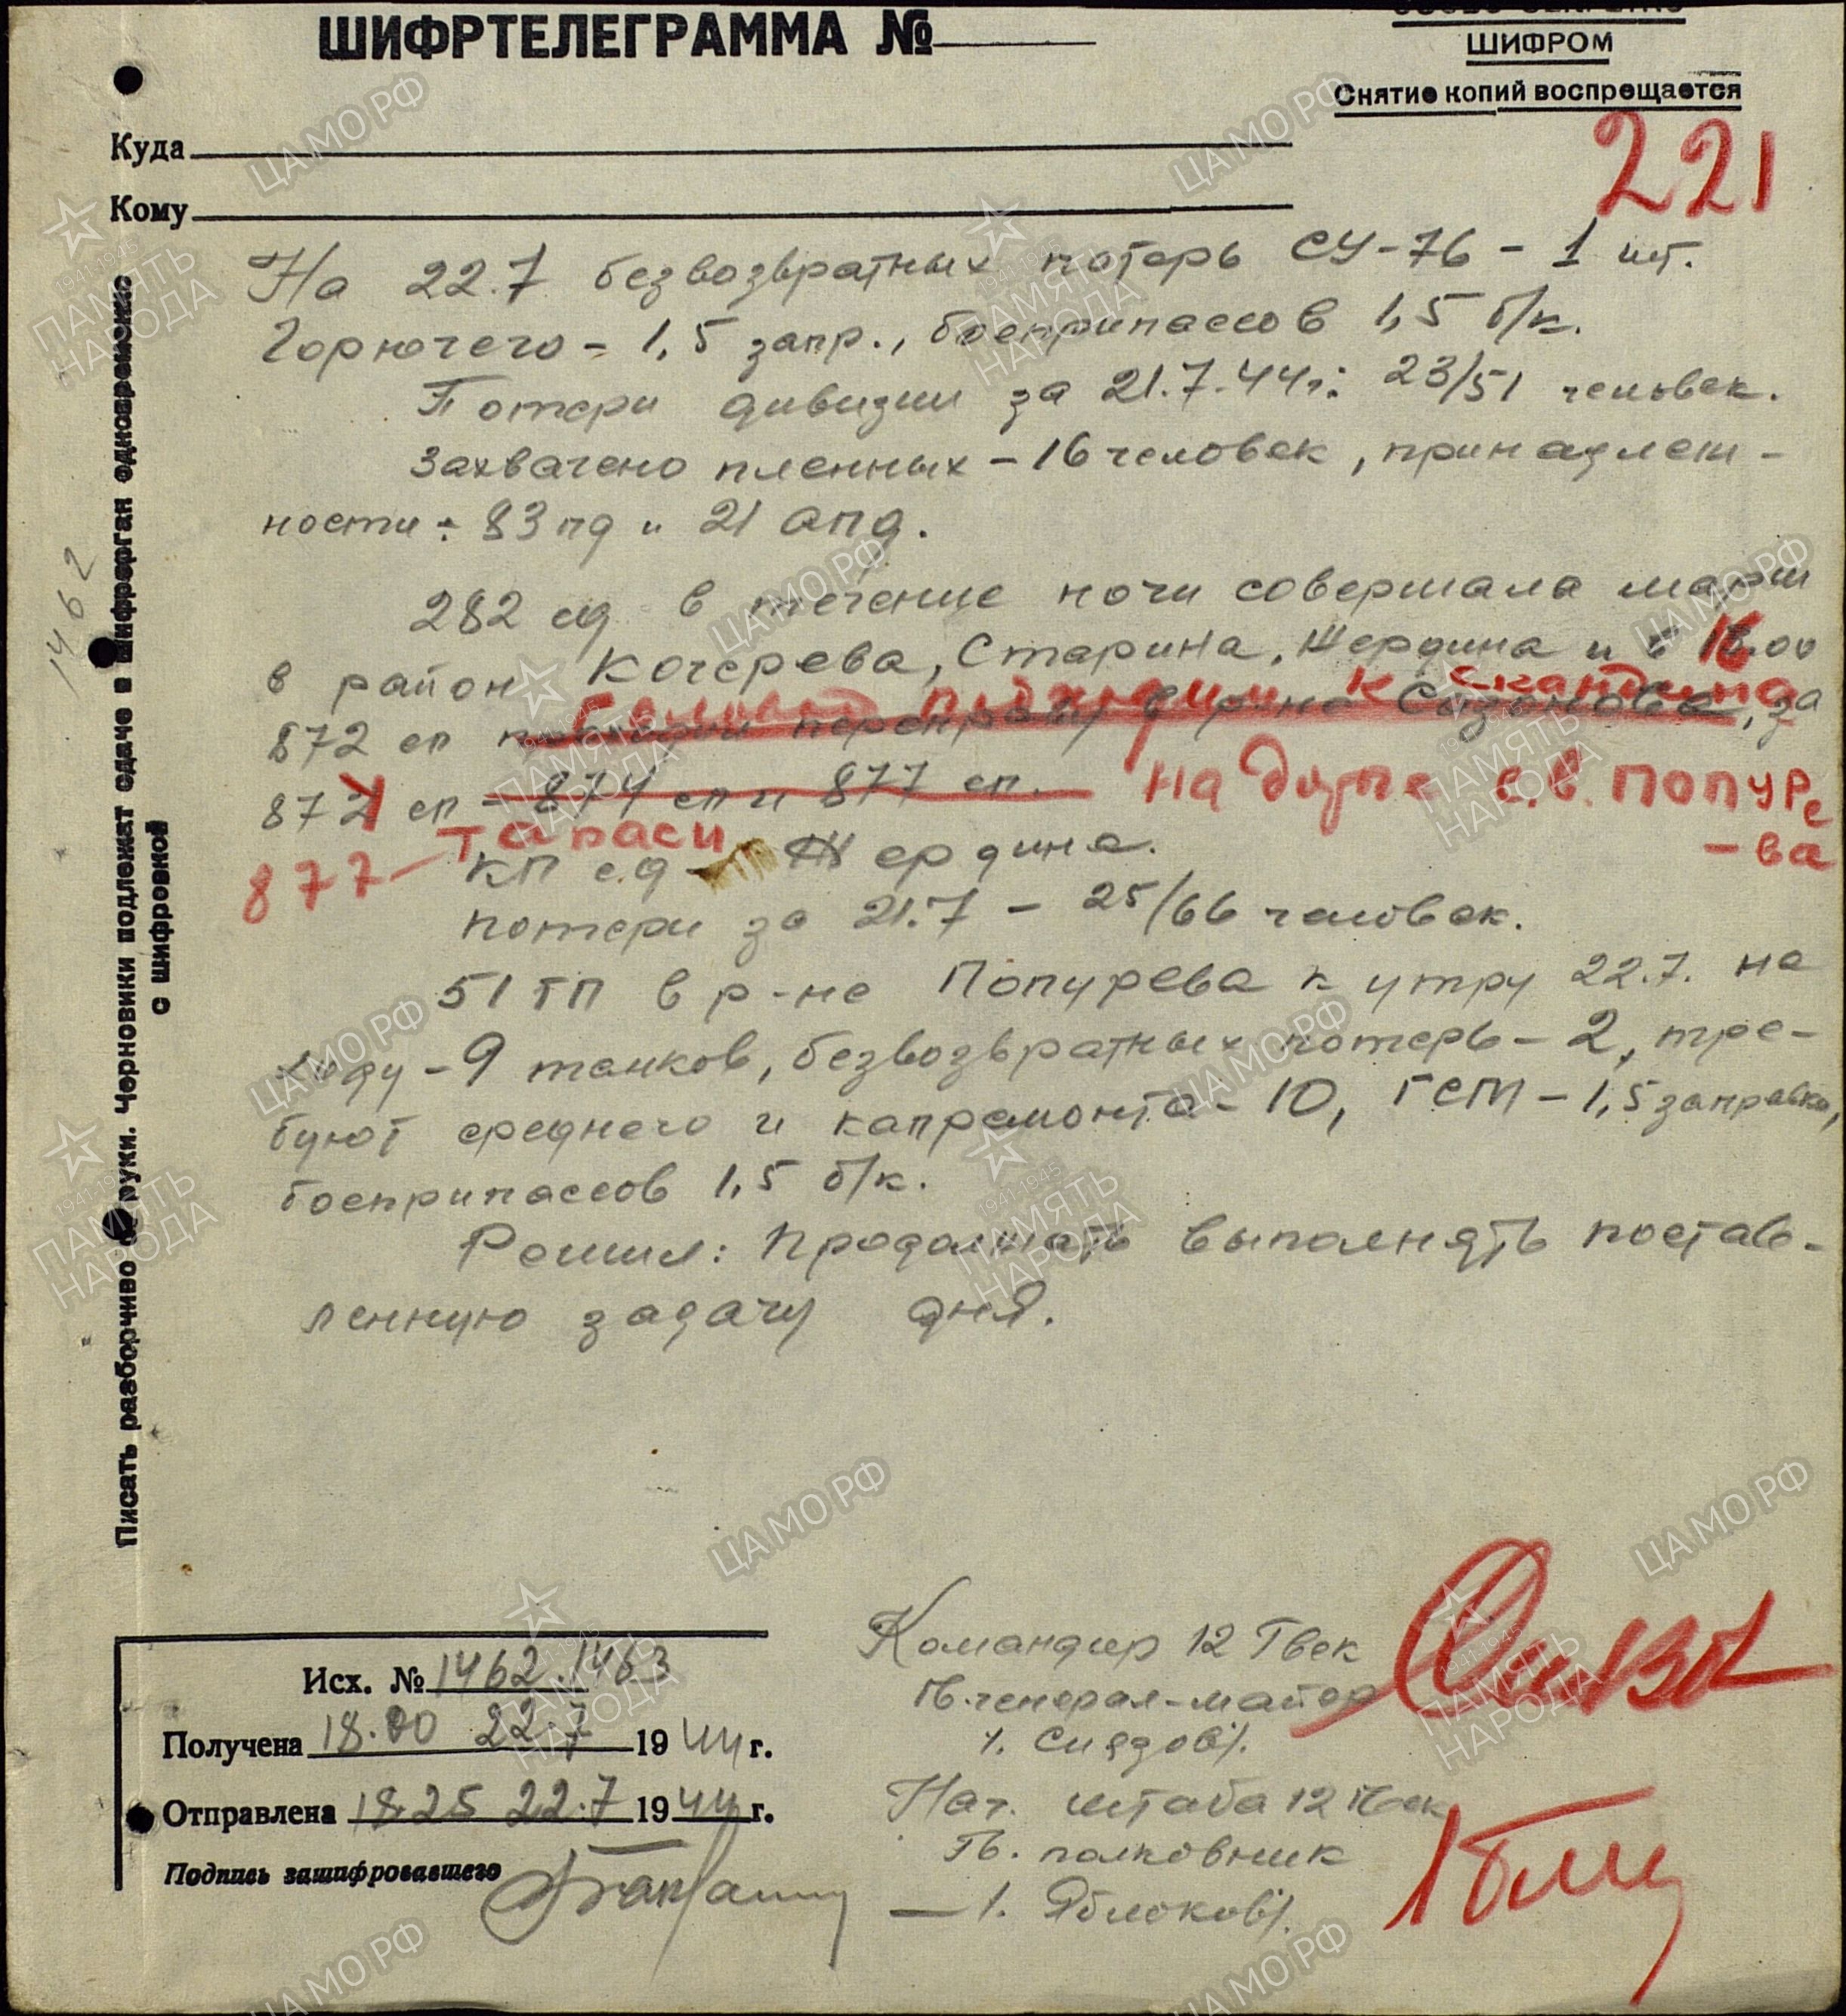 ШИФРТЕЛЕГРАММА №
ШИФРОМ
Снятие копий воспрещается
221
Куда
Кому
На 22.7 безвозвратных потерь СУ-76 - 1 шт.
Горючего - 1,5 запр., боеприпассов 1,5 б/к.
Потери дивизии за 21.7.44г: 23/51 человек.
Захвачено пленных - 16 человек, принадлеж-
ности: 83 пд и 21 апд.
282 сд в течение ночи совершала марш
в район Кочерева, Старина, Жердина и в 16.00
872 сп подходил к Скандина
872 сп переправу в р-не Сизоново, за
874 сп - 874 сп и 877 сп. на с.в. Попуре
-ва
877 - Тараси
КП сд - Жердина.
потери за 21.7 - 25/66 человек.
51 ТП в р-не Попурева к утру 22.7. на
ходу - 9 танков, безвозвратных потерь - 2, тре-
буют среднего и капремонта - 10, ГСМ - 1,5 заправки,
боеприпассов 1,5 б/к.
Решил: Продолжать выполнять постав-
ленную задачу дня.
Писать разборчиво от руки. Черновики подлежат сдаче в шифрорган одновременно
с шифровкой
1462
Исх. № 1462.1463
Получена 18.00 22.7 1944 г.
Отправлена 18.25 22.7 1944 г.
Подпись зашифровавшего
Командир 12 Гвск
Гв. генерал-майор
/. Сиязов/.
Нач. штаба 12 Гвск
Гв. полковник
— /. Яблоков/.
ЦАМО РФ
1941-1945
ПАМЯТЬ
НАРОДА